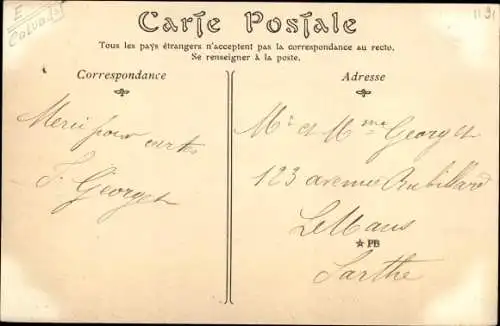 E
CALVADOS
1191
Carte Postale
Tous les pays étrangers n'acceptent pas la correspondance au recto.
Se renseigner à la poste.
Correspondance
Merci pour carte
F. Georget
Adresse
Mr et Mme Georget
123 avenue Rubillard
Le Mans
★ PB
Sarthe